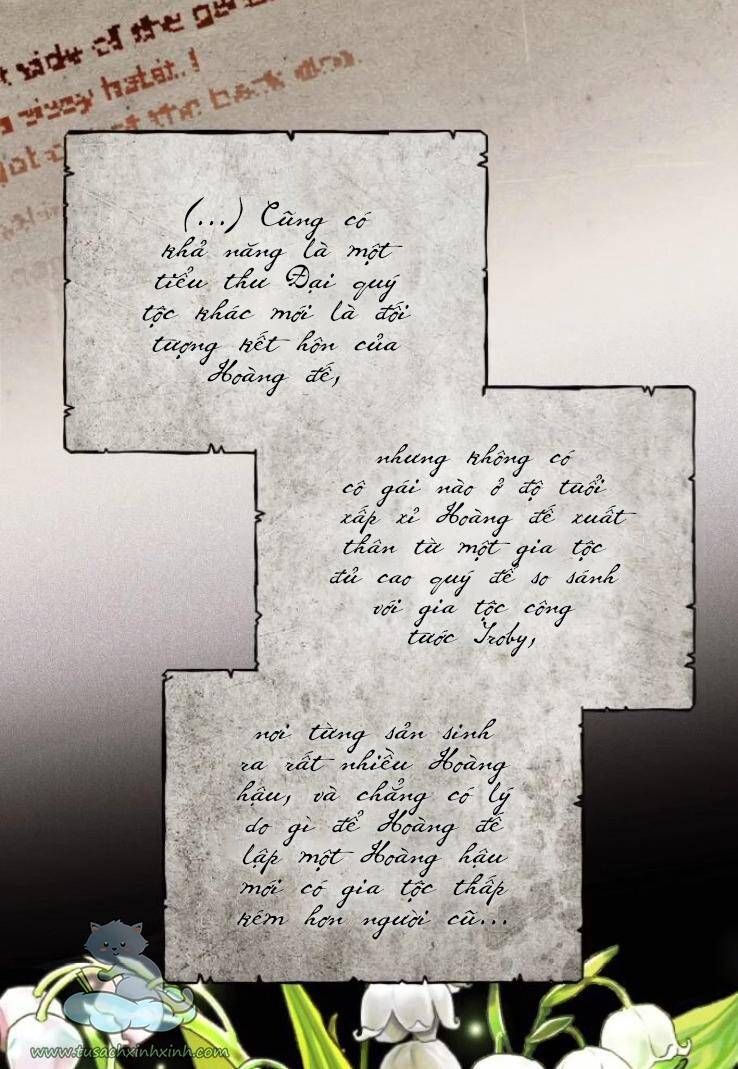 t side of the
(...) Cũng có
khả năng là một
tiểu thư Đại quý
tộc khác mới là đối
tượng kết hôn của
Hoàng đế,
nhưng không có
cô gái nào ở độ tuổi
xấp xỉ Hoàng đế xuất
thân từ một gia tộc
đủ cao quý để so sánh
với gia tộc công
tước Iroby,
nơi từng sản sinh
ra rất nhiều Hoàng
hậu, và chẳng có lý
do gì để Hoàng đế
lập một Hoàng hậu
mới có gia tộc thấp
kém hơn người cũ...
www.tusachxinhxinh.com